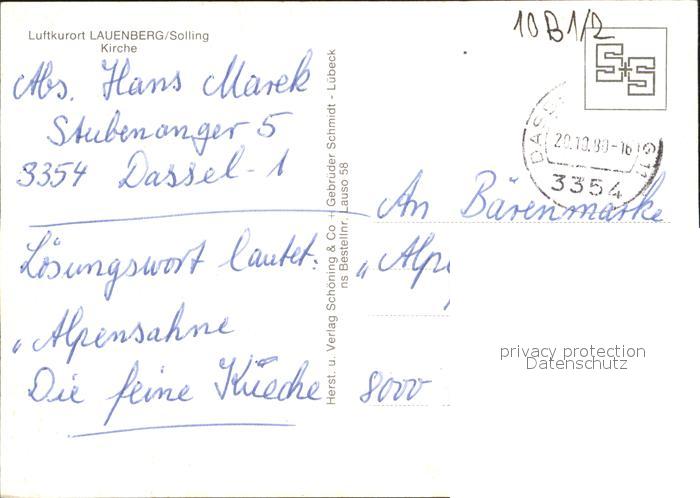 Luftkurort LAUENBERG/Solling
Kirche
10B1/2
Abs. Hans Marek
Stubenanger 5
3354 Dassel-1
Lösungswort lautet:
„Alpensahne
Die feine Küche
Herst. u. Verlag Schöning & Co + Gebrüder Schmidt - Lübeck
ns Bestellnr. Lauso 58
S+S
20.10.80-16
3354
An Bärenmarke
„Alpe
8000
privacy protection
Datenschutz